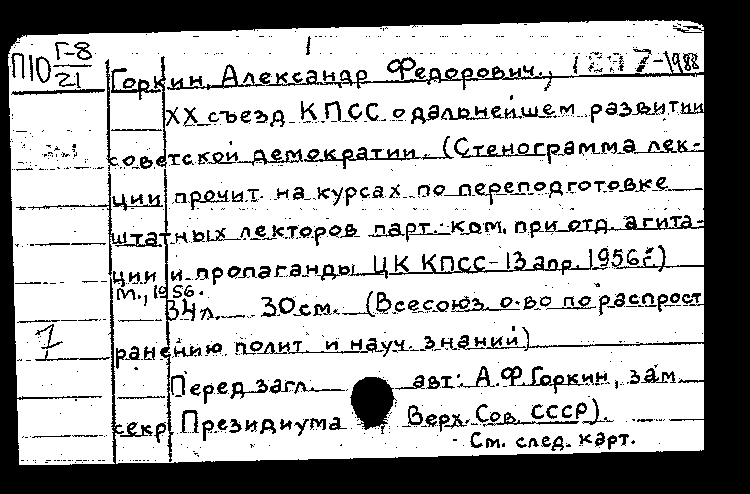 П10 Г-8
21
Горкин, Александр Федорович., 1897-1988
XX съезд КПСС о дальнейшем развитии
советской демократии. (Стенограмма лек-
ции прочит. на курсах по переподготовке
штатных лекторов парт. ком. при отд. агита-
ции и пропаганды ЦК КПСС-13 апр. 1956г.)
М., 1956.
34л. 30см. (Всесоюз. о-во по распрост
ранению полит. и науч. знаний)
7
Перед загл. авт: А.Ф.Горкин, зам.
секр Президиума Верх. Сов. СССР).
См. след. карт.